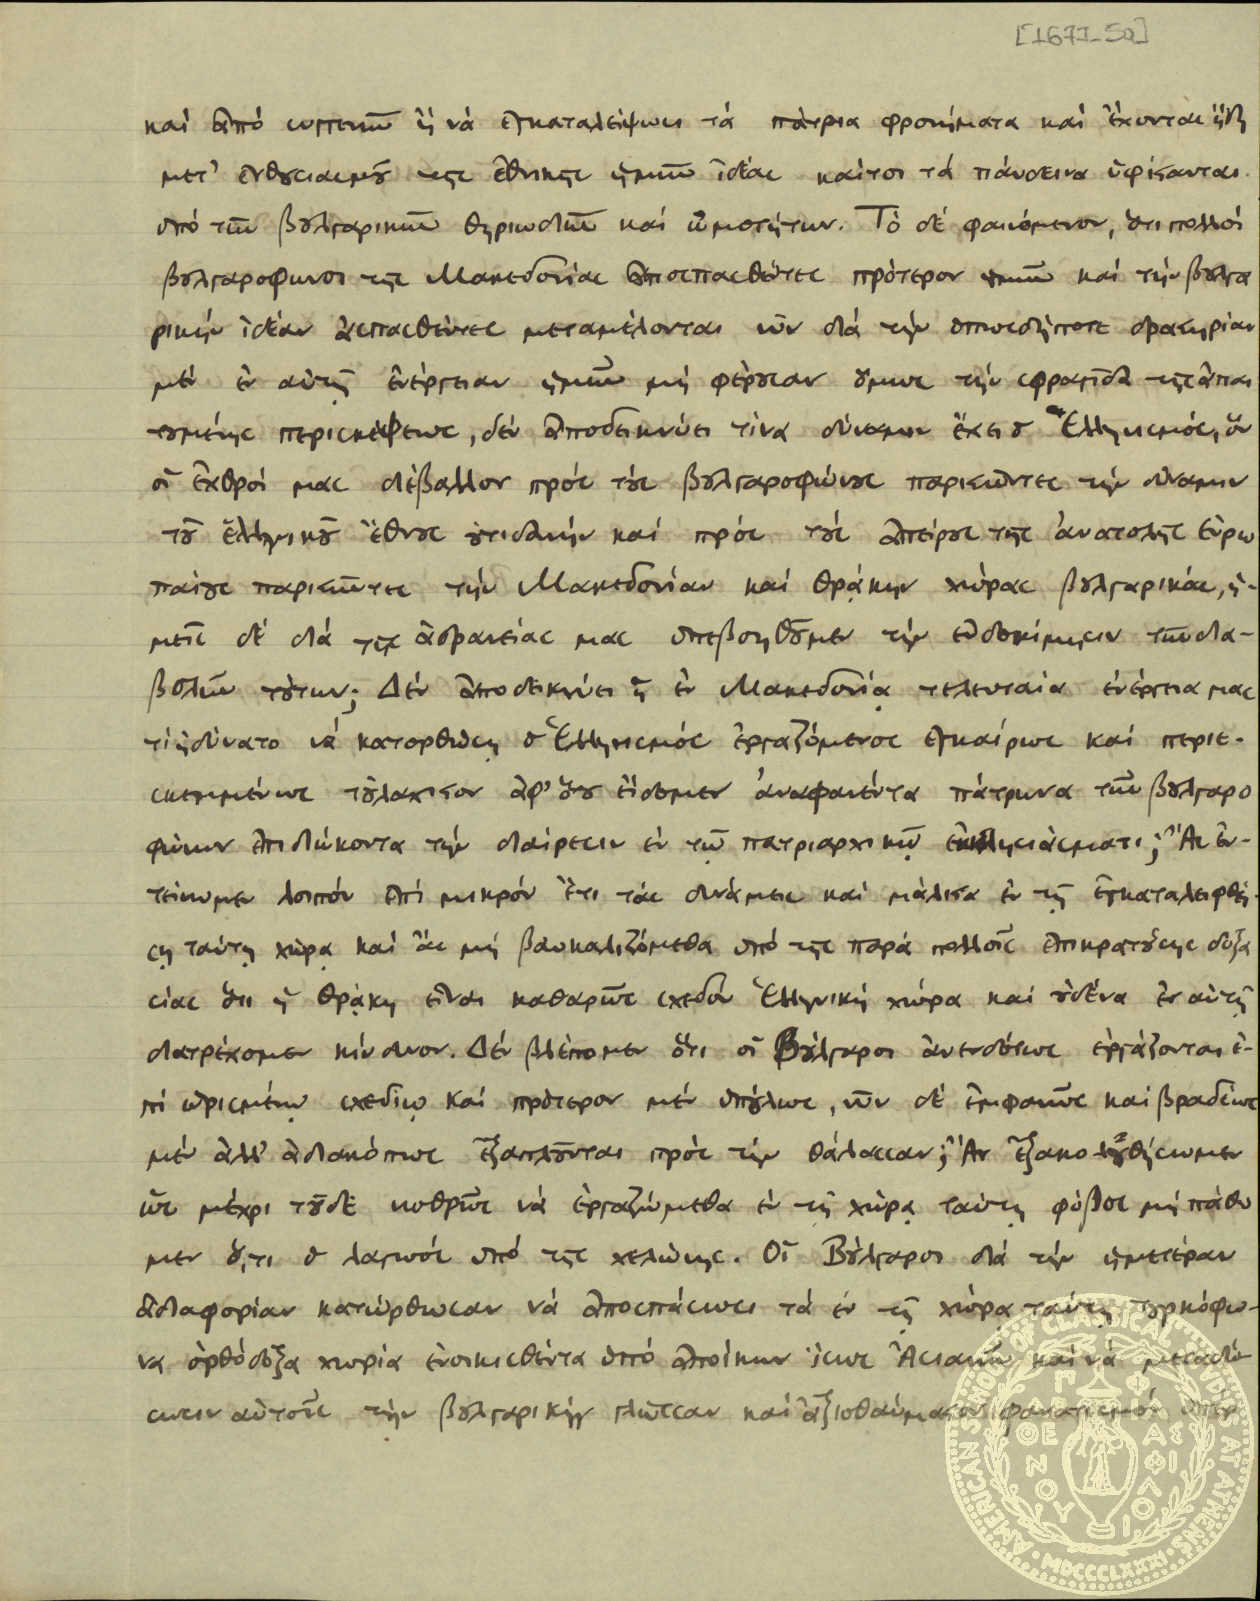 [1671_50]
καί ἀπό συγγενῶν ἤ νά ἐγκαταλείψωσι τά πάτρια φρονήματα καί ἔχονται ἤδη
μετ' ἐνθουσιασμοῦ τῆς ἐθνικῆς ἡμῶν ἰδέας καίτοι τά πάνδεινα ὑφίστανται
ὑπό τῶν βουλγαρικῶν θηριωδῶν καί ὠμοτήτων. Τό δέ φαινόμενον, ὅτι πολλοί
βουλγαρόφωνοι τῆς Μακεδονίας ἀποσπασθέντες πρότερον ἡμῶν καί τήν βουλγα
ρικήν ἰδέαν ἀσπασθέντες μεταμέλονται νῦν διά τήν ὁπωσδήποτε δραστηρίαν
μέν ἐν αὐτῇ ἐνέργειαν ἡμῶν μή φέρουσαν ὅμως τήν σφραγῖδα τῆς ἀπαι
τουμένης περισκέψεως, δέν ἀποδεικνύει τίνα δύναμιν ἔχει ὁ Ἑλληνισμός, ὅν
οἱ ἐχθροί μας διέβαλλον πρός τούς βουλγαροφώνους παριστῶντες τήν δύναμιν
τοῦ ἑλληνικοῦ ἔθνους οὐτιδανήν καί πρός τούς ἀπείρους τῆς ἀνατολῆς Εὐρω
παίους παριστῶντες τήν Μακεδονίαν καί Θρᾴκην χώρας βουλγαρικάς, ἡ-
μεῖς δέ διά τῆς ἀδρανείας μας ὑπεβοηθοῦμεν τήν εὐδοκίμησιν τῶν δια-
βολῶν τούτων; Δέν ἀποδεικνύει ἡ ἐν Μακεδονίᾳ τελευταία ἐνέργεια μας
τί ἠδύνατο νά κατορθώσῃ ὁ Ἑλληνισμός ἐργαζόμενος ἐγκαίρως καί περιε-
σκεμμένως τοὐλάχιστον ἀφ' ὅτου εἴδομεν ἀναφανέντα πάτρωνα τῶν βουλγαρο
φώνων ἐπιδιώκοντα τήν διαίρεσιν ἐν τῷ πατριαρχικῷ ἐκκλησιάσματι; Ἄς ἐν-
τείνωμεν λοιπόν ἐπί μικρόν ἔτι τάς δυνάμεις καί μάλιστα ἐν τῇ ἐγκαταλειφθεί-
σῃ ταύτῃ χώρᾳ καί ἄς μή βαυκαλιζόμεθα ὑπό τῆς παρά πολλοῖς ἐπικρατούσης δοξα
σίας ὅτι ἡ Θρᾴκη εἶναι καθαρῶς σχεδόν Ἑλληνική χώρα καί οὐδένα ἐν αὐτῇ
διατρέχομεν κίνδυνον. Δέν βλέπομεν ὅτι οἱ Βούλγαροι ἀνενδότως ἐργάζονται ἐ-
πί ὡρισμένῳ σχεδίῳ καί πρότερον μέν ὑπούλως, νῦν δέ ἐμφανῶς καί βραδέως
μέν ἀλλ' ἀδιακόπως ἐξαπλοῦνται πρός τήν θάλασσαν; Ἄν ἐξακολουθήσωμεν
ὡς μέχρι τοῦδε νωθρῶς νά ἐργαζώμεθα ἐν τῇ χώρᾳ ταύτῃ φόβος μή πάθω
μεν ὅ,τι ὁ λαγωός ὑπό τῆς χελώνης. Οἱ Βούλγαροι διά τήν ἡμετέραν
ἀδιαφορίαν κατώρθωσαν νά ἀποσπάσωσι τά ἐν τῇ χώρᾳ ταύτῃ τουρκόφω-
να ὀρθόδοξα χωρία ἐνοικισθέντα ὑπό ἀποίκων ἴσως Ἀσιανῶν καί νά μεταδώ
σωσιν αὐτοῖς τήν βουλγαρικήν γλῶσσαν καί ἀξιοθαύμαστον φανατισμόν ὑπέρ
AMERICAN SCHOOL OF CLASSICAL STUDIES AT ATHENS
MDCCCLXXXI
ΠΑΡΘΕΝΟΥ ΦΙΛΑΣ ΦΙΛΟΙ